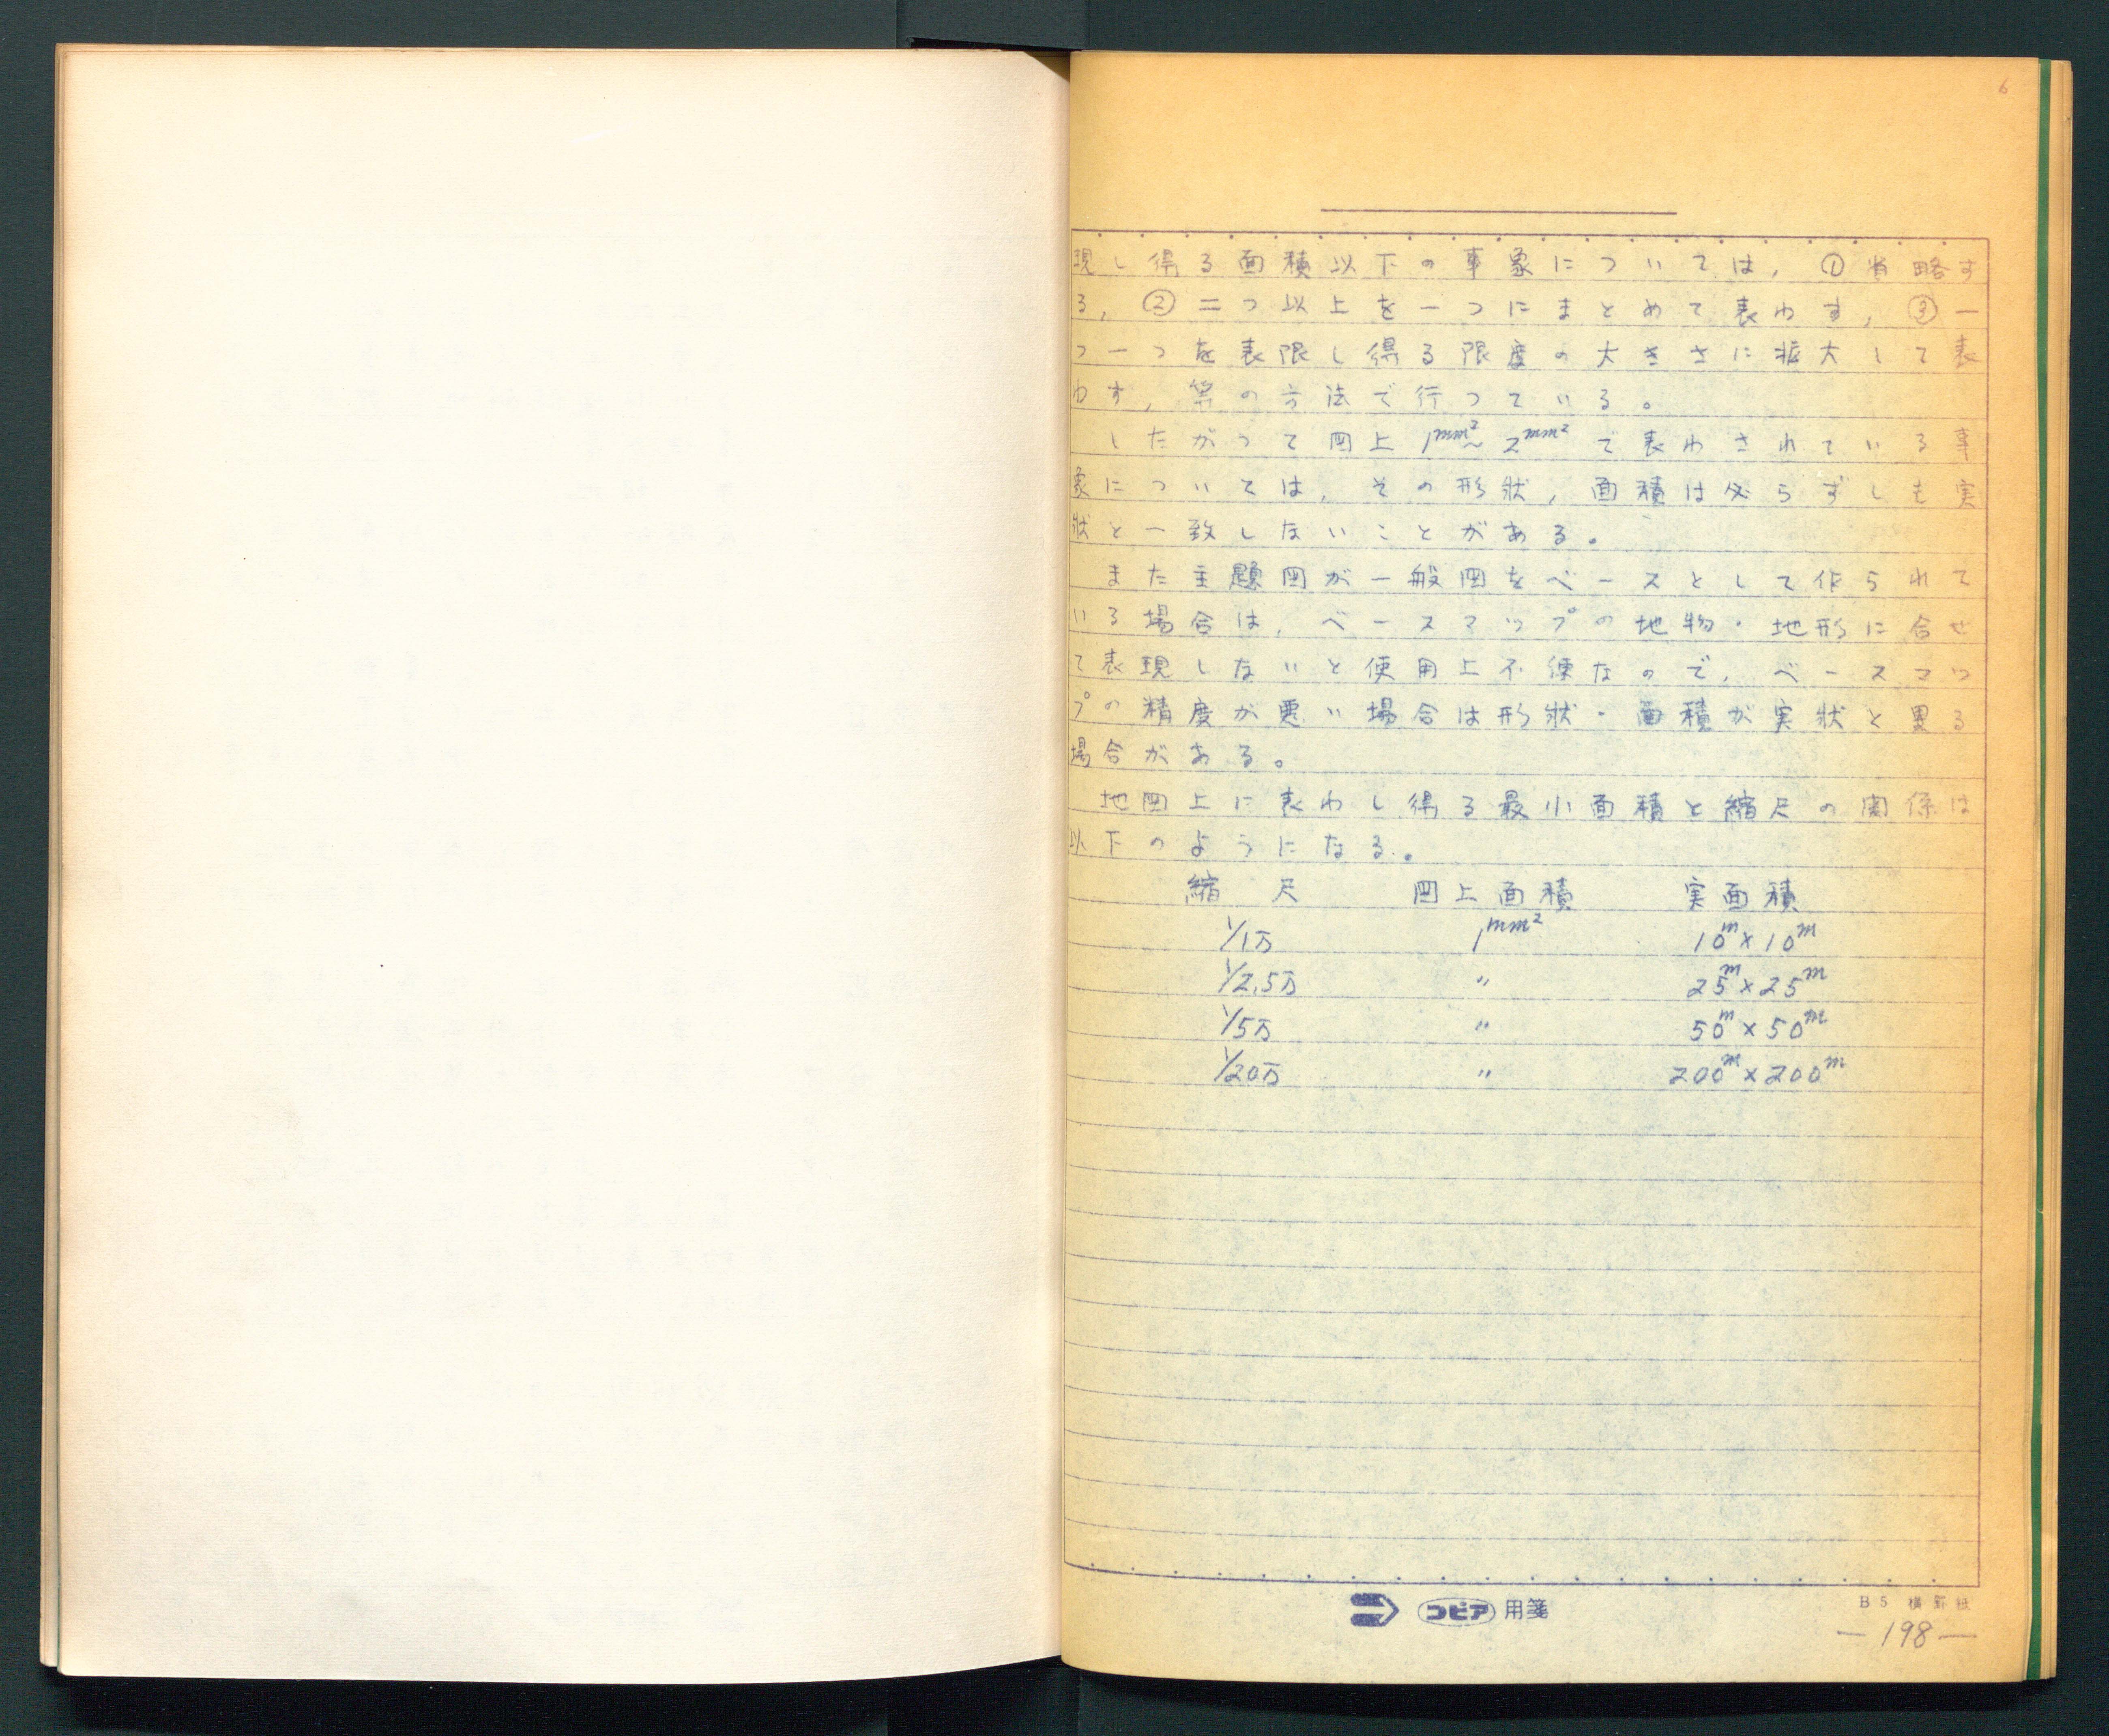 6
現し得る面積以下の事象については，①省略す
る，②二つ以上を一つにまとめて表わす，③一
つ一つを表限し得る限度の大きさに拡大して表
わす，等の方法で行つている。
したがつて図上1mm²～2mm²で表わされている事
象については，その形状，面積は必らずしも実
状と一致しないことがある。
また主題図が一般図をベースとして作られて
いる場合は，ベースマップの地物・地形に合せ
て表現しないと使用上不便なので，ベースマッ
プの精度が悪い場合は形状・面積が実状と異る
場合がある。
地図上に表わし得る最小面積と縮尺の関係は
以下のようになる。
縮尺 図上面積 実面積
1/1万 1mm² 10m×10m
1/2.5万 〃 25m×25m
1/5万 〃 50m×50m
1/20万 〃 200m×200m
コピア用箋
B5 横罫紙
—198—